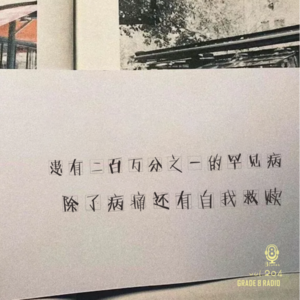 患有二百万分之一的罕见病
除了病痛还有自我救赎
8
vol.204
GRADE 8 RADIO